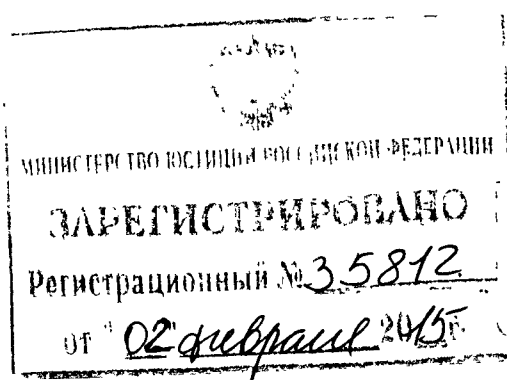 МИНИСТЕРСТВО ЮСТИЦИИ РОССИЙСКОЙ ФЕДЕРАЦИИ
ЗАРЕГИСТРИРОВАНО
Регистрационный № 35812
от "02" февраля 2015г.